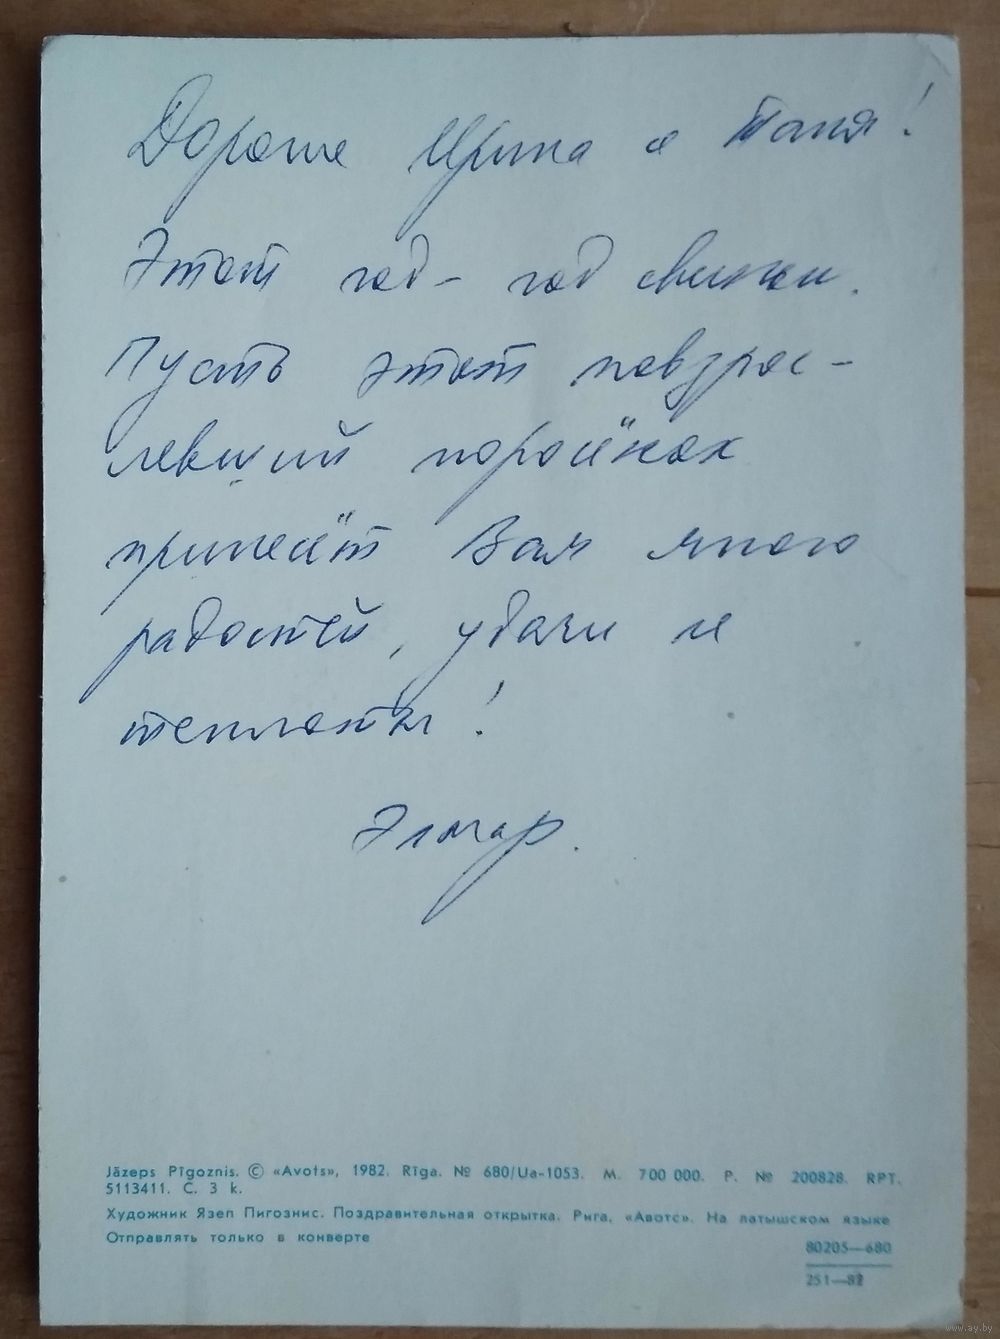 Дорогие Ирина и Таня!
Этот год - год свиньи.
Пусть этот повзрос-
левший поросёнок
принесёт Вам много
радостей, удачи и
теплоты!
Элмар.
Jāzeps Pīgoznis. © «Avots», 1982. Rīga. № 680/Ua-1053. M. 700 000. P. № 200828. RPT.
5113411. C. 3 k.
Художник Язеп Пигознис. Поздравительная открытка. Рига, «Авотс». На латышском языке
Отправлять только в конверте
80205—680
251—82
www.ay.by